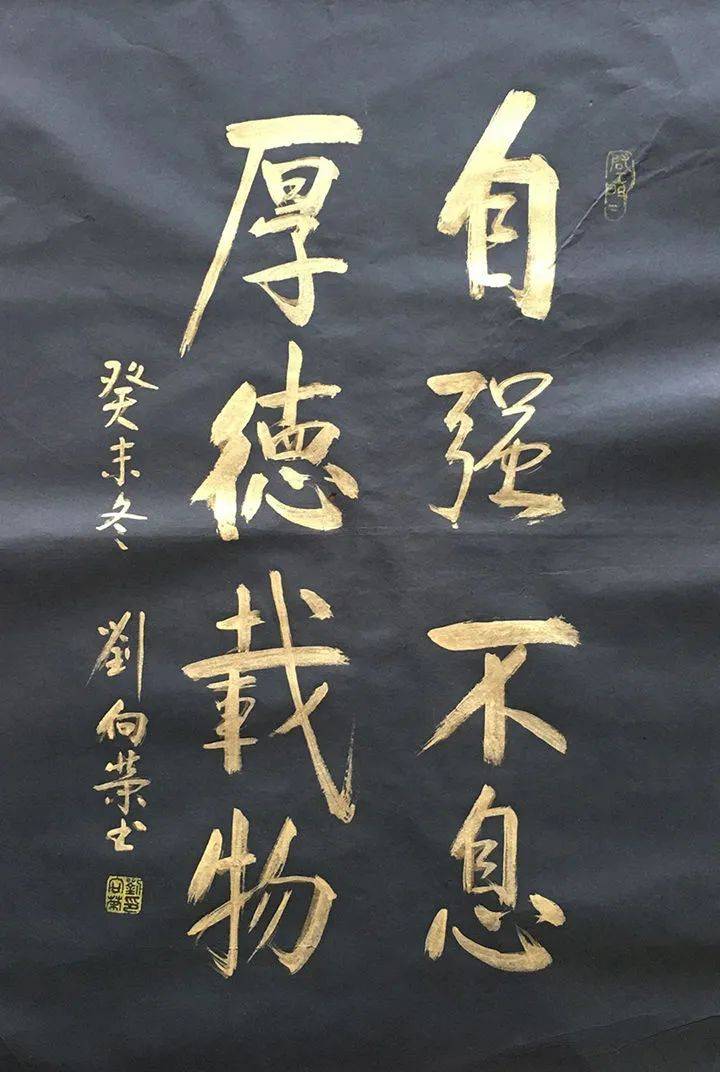 自强不息
厚德载物
癸未冬 劉向荣书